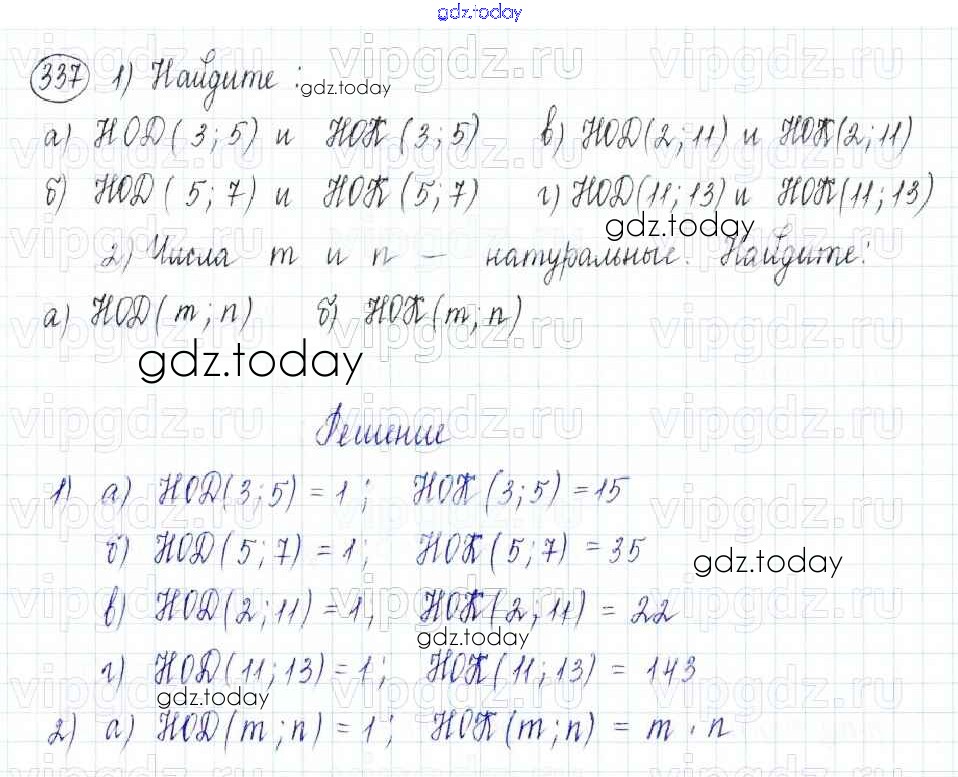 gdz.today
337 1) Найдите :
gdz.today
а) НОД(3;5) и НОК(3;5) в) НОД(2;11) и НОК(2;11)
б) НОД(5;7) и НОК(5;7) г) НОД(11;13) и НОК(11;13)
gdz.today
2) Числа m и n — натуральные. Найдите:
а) НОД(m;n) б) НОК(m;n)
gdz.today
Решение
1) а) НОД(3;5) = 1; НОК(3;5) = 15
б) НОД(5;7) = 1; НОК(5;7) = 35
gdz.today
в) НОД(2;11) = 1; НОК(2;11) = 22
gdz.today
г) НОД(11;13) = 1; НОК(11;13) = 143
gdz.today
2) а) НОД(m;n) = 1; НОК(m;n) = m · n
vipgdz.ru